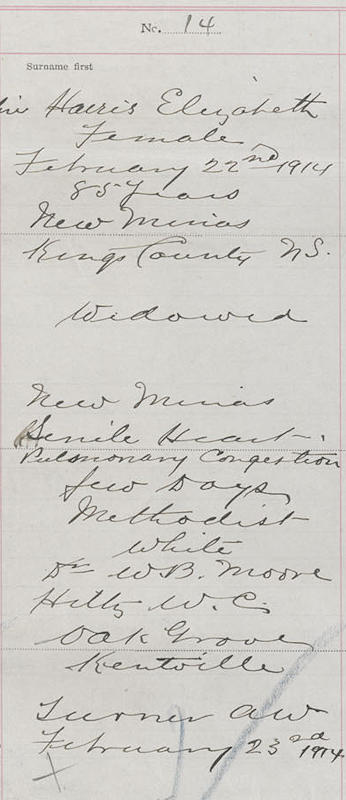 No. 14
Surname first
Harris Elizabeth
Female
February 22nd 1914
85 years
New Minas
Kings County N.S.
Widowed
New Minas
Senile Heart
Pulmonary Congestion
few Days
Methodist
White
Dr W.B. Moore
W.C.
Oak Grove
Kentville
Turner AW
February 23rd 1914